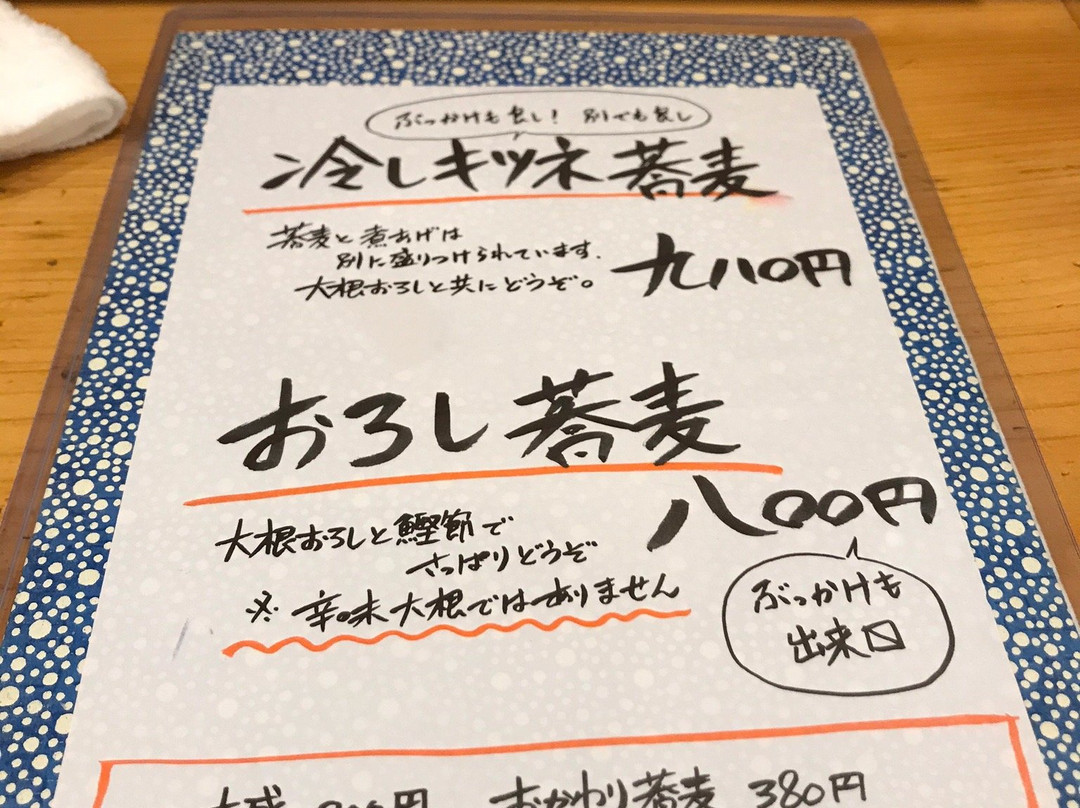 ぶっかけも良し! 別でも良し
冷しキツネ蕎麦
蕎麦と煮あげは
別に盛りつけられています.
大根おろしと共にどうぞ。
九八〇円
おろし蕎麦
八〇〇円
大根おろしと鰹節で
さっぱりどうぞ
※ 辛味大根ではありません
ぶっかけも
出来〼
おかわり蕎麦 380円